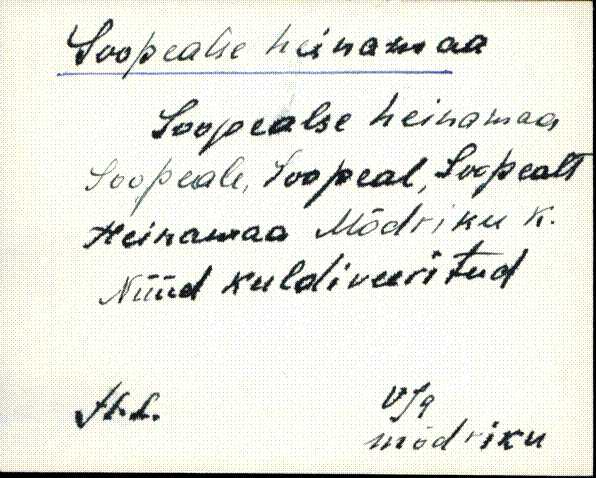 Soopealse heinamaa
Soopealse heinamaa
Soopeale, Soopeal, Soopealt
Heinamaa Mõdriku k.
Nüüd kuldiveeritud
VJg
mõdriku